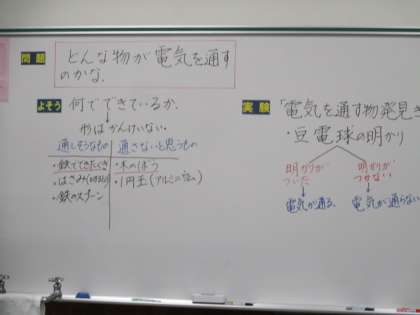 問題
どんな物が電気を通す
のかな。
よそう
何でできているか。
形はかんけいない。
通しそうなもの
通さないと思うもの
・鉄でできたくぎ
・木のぼう
・はさみ
・1円玉(アルミニウム)
・鉄のスプーン
実験
「電気を通す物発見き
・豆電球の明かり
明かりが
ついた
明かりが
つかない
電気が通る。
電気が通らない